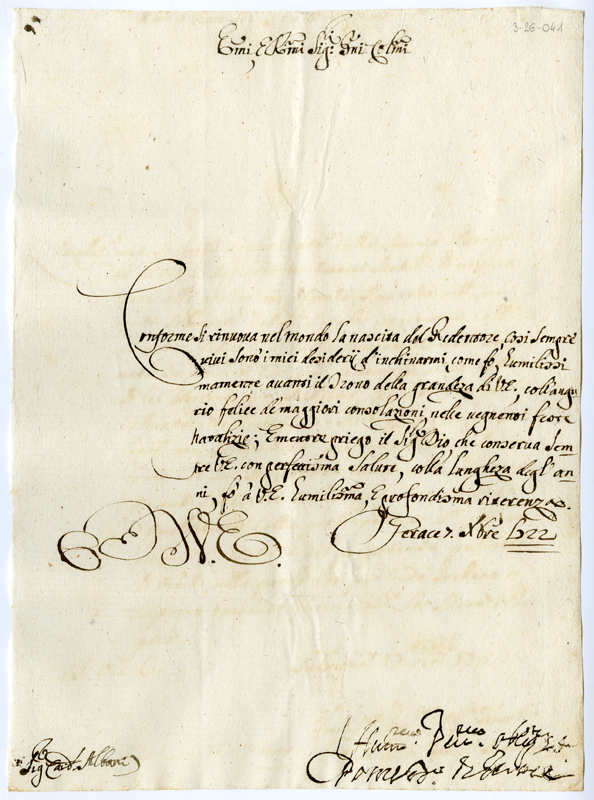 3-26-041
Emi, e Rmi Sig.ri
Conforme si rinuova nel mondo la nascita del Redentore, cosi sempre
vivi sono i miei desiderij d'inchinarmi, come fo, humilissi
mamente avanti il Trono della grandeza di V.E., coll'augu
rio felice di maggiori consolazioni nelle vegnenti feste
Natalizie; E mentre priego il Sig.r Dio che conserva sem
pre V.E. con perfettissima salute, colla lungheza degl'an
ni, fo à V.E. humilissima, e profondissima riverenza.
Gerace 7. Xbre
V.E.
Sig. Card. Albani
Hum.mo